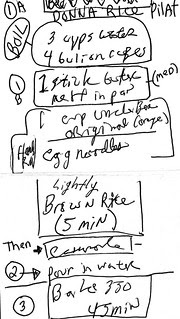 ①A
DONNA RICE Pilaf
BOIL
3 cups water
4 bulion cubes
①B
1 stick butter
melt in pan
(med)
1 cup Uncle Ben
original (orange)
egg noodles
lightly
Brown Rice
(5 min)
Then
casserole
② pour in water
③ Bake 350
45 min